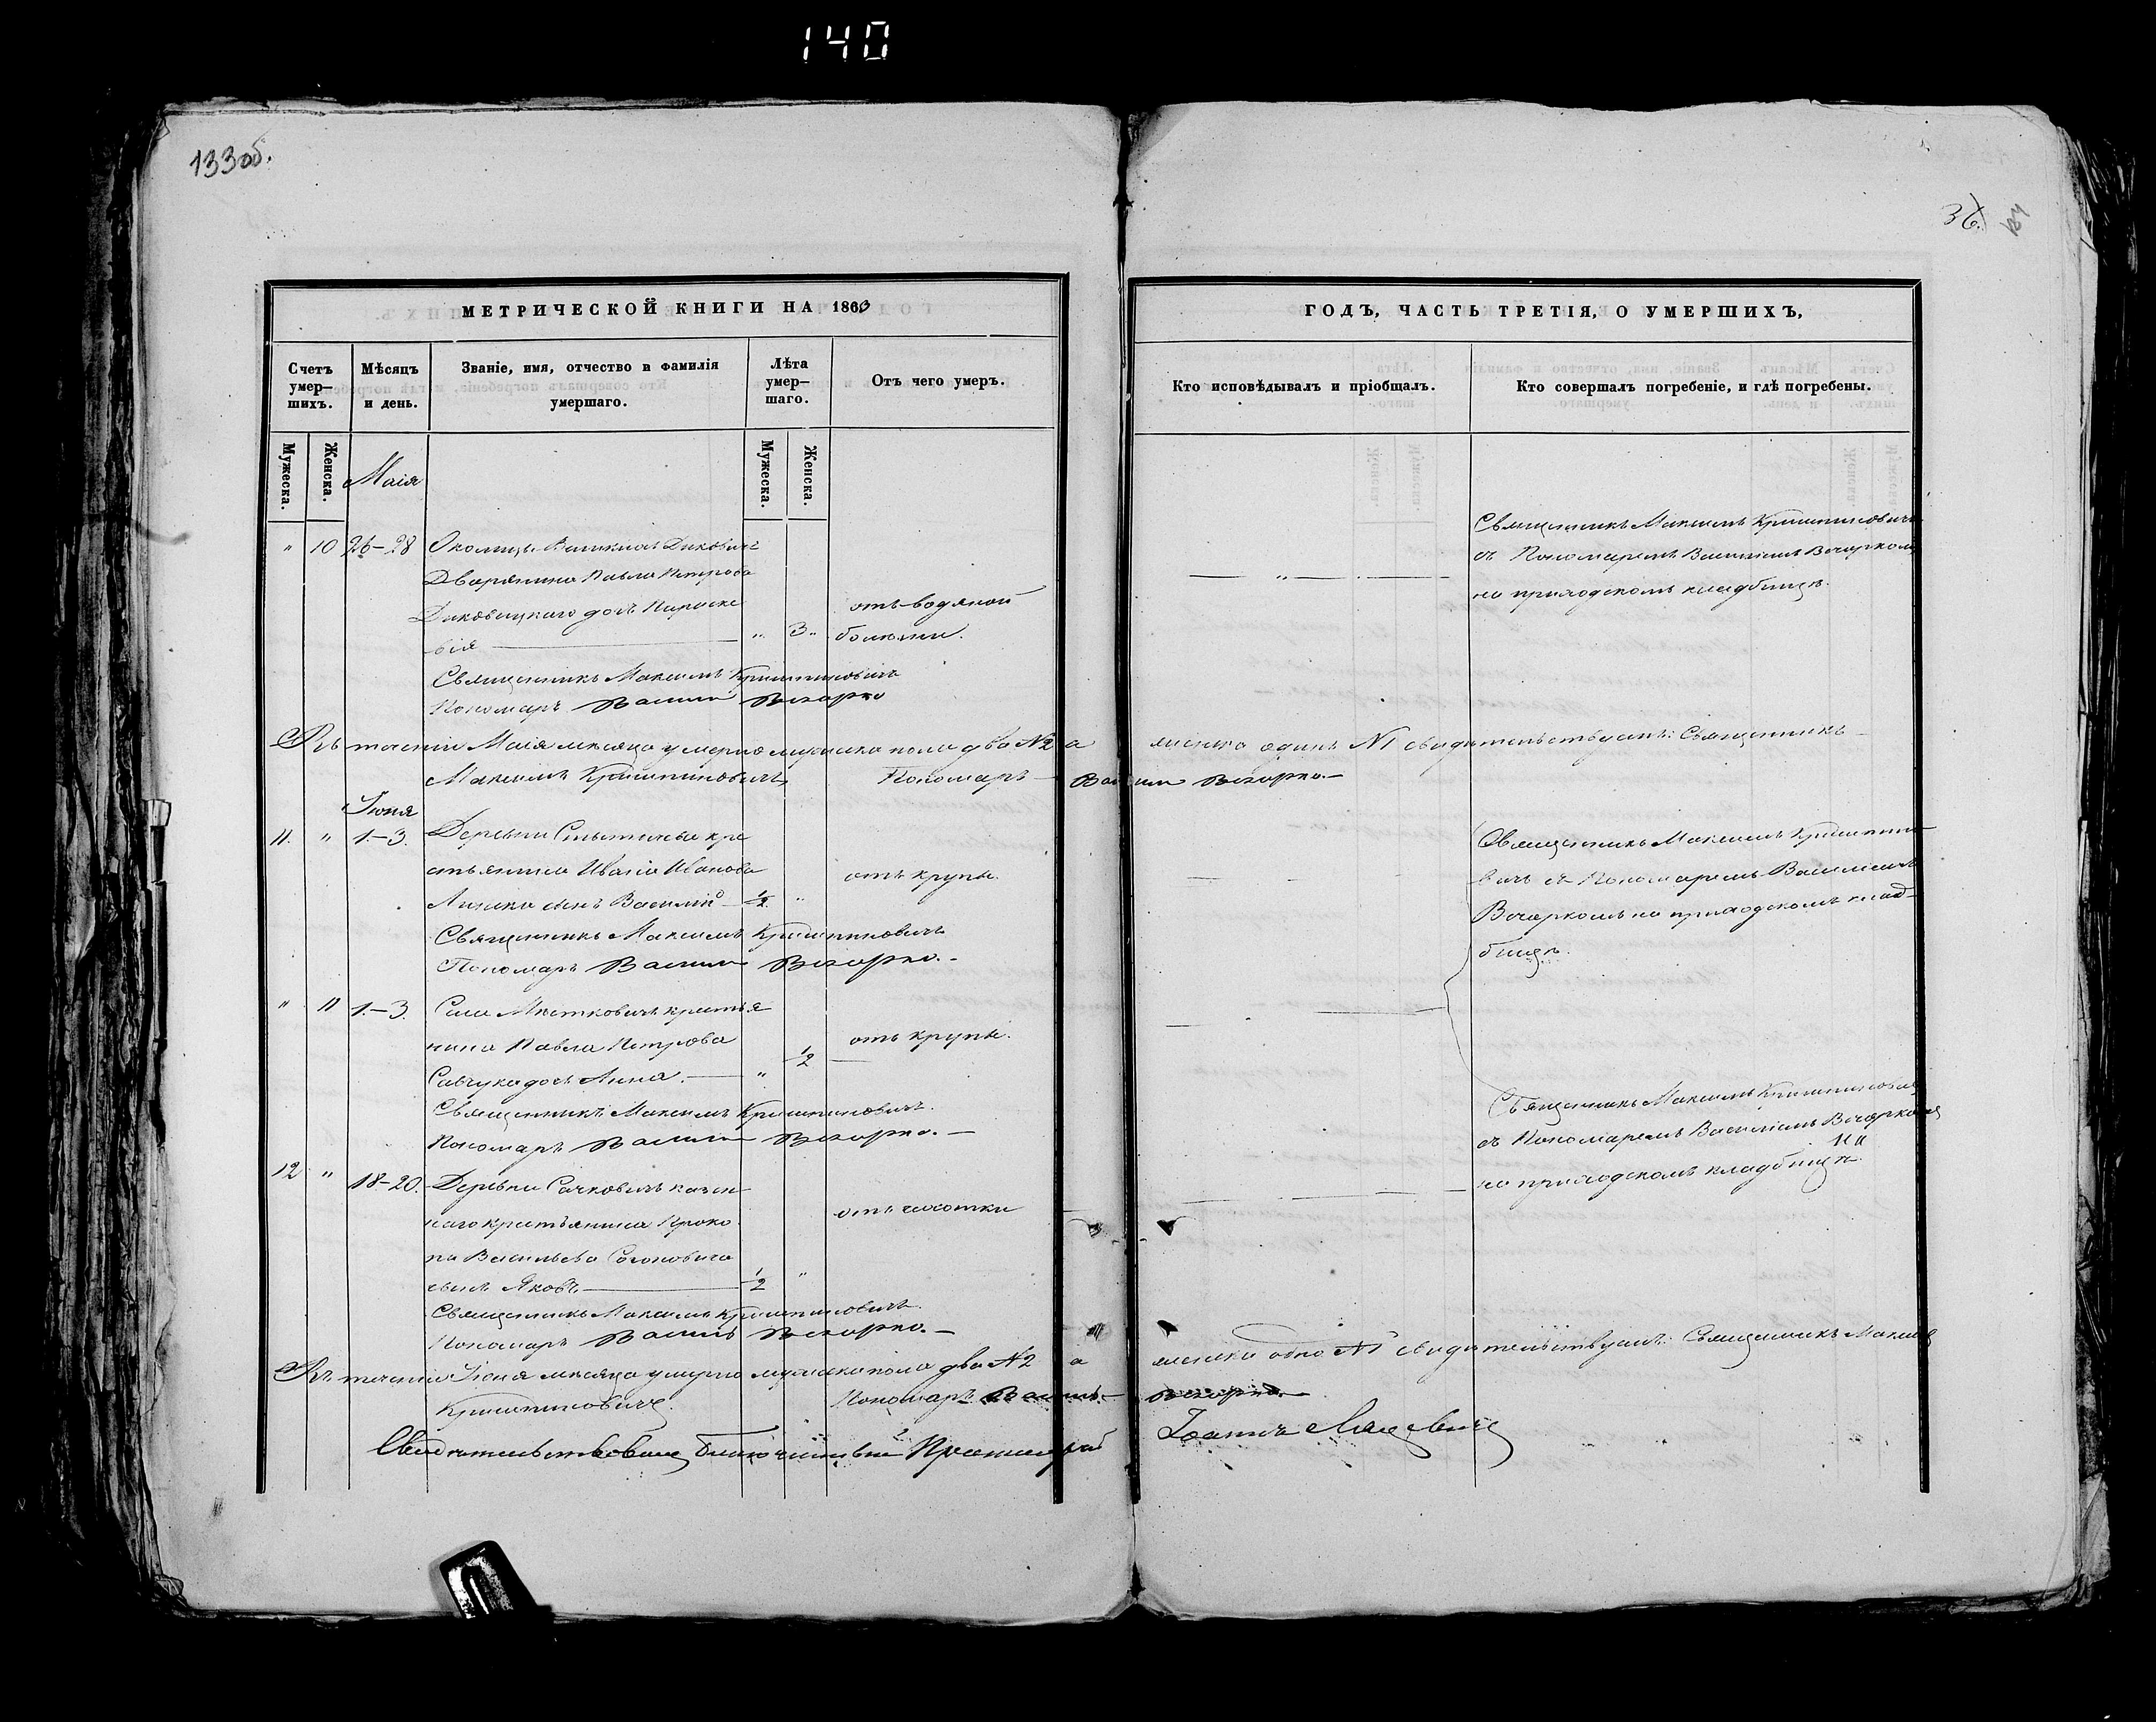 140
133 об.
36.
134
МЕТРИЧЕСКОЙ КНИГИ НА 1863
Счетъ умер–шихъ.
Мѣсяцъ и день.
Званіе, имя, отчество и фамилія умершаго.
Лѣта умер–шаго.
Отъ чего умеръ.
Мужеска.
Женска.
Мужеска.
Женска.
Маія
" 10 26–28
Околицы Дековичъ
Дворянина Павла Петрова
Диковицкаго дочь Параске
вія " 3 "
отъ водяной
болезни.
Священникъ Максимъ Криштиновичъ
Пономарь Василій Вечорко
Въ теченіи Маія месяца умерло мужеска пола два №2 а
Максимъ Криштиновичъ Пономарь Василій Вечорко.–
Іюня
11. " 1.–3. Деревни кре
стьянина Ивана Иванова
сынъ Василій ½ "
отъ крупы.
Священникъ Максимъ Криштиновичъ
Пономарь Василій Вечорко.–
" 11 1.–3. Села Местковичъ крестья
нина Павла Петрова
Савчука дочь Анна. " ½
отъ крупы.
Священникъ Максимъ Криштиновичъ.
Пономарь Василій Вечорко.–
12 " 18–20. Деревни Сачковичъ казен
наго крестьянина Проко
па Васильева
сынъ Яковъ ½ "
отъ чесотки
Священникъ Максимъ Криштиновичъ.
Пономарь Василій Вечорко.–
Въ теченіи Іюня месяца умерло мужеска пола два №2 а
Криштиновичъ. Пономарь Василій Вечорко.–
Свидетельствовалъ Благочинный Протоиерей
ГОДЪ, ЧАСТЬ ТРЕТІЯ, О УМЕРШИХЪ,
Кто исповѣдывалъ и пріобщалъ.
Кто совершалъ погребеніе, и гдѣ погребены.
Священникъ Максимъ Криштиновичъ
съ Пономаремъ Василіемъ Вечоркомъ
на приходскомъ кладбищѣ.
женска одинъ №1 свидетельствуемъ: Священникъ
Священникъ Максимъ Криштино
вичъ съ Пономаремъ Василіемъ
Вечоркомъ на приходскомъ клад–
бищѣ.
Священникъ Максимъ Криштиновичъ
съ Пономаремъ Василіемъ Вечоркомъ
на
на приходскомъ кладбищѣ.
женска одно №1 свидетельствуемъ: Священникъ Максимъ
Іоаннъ